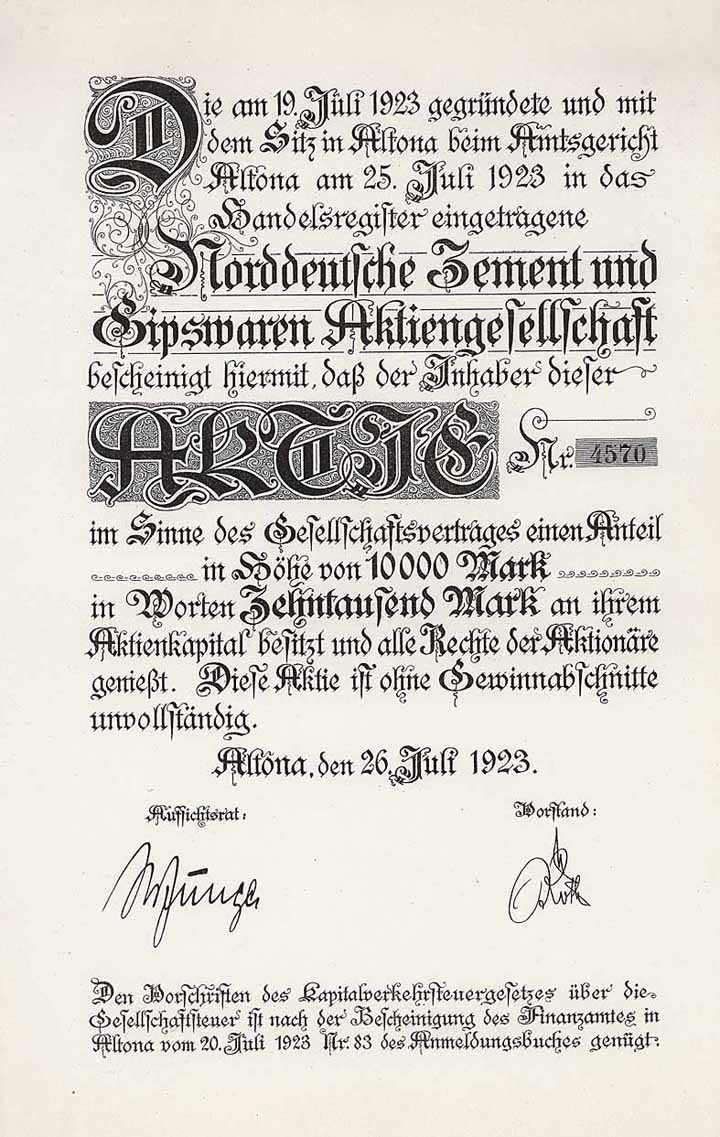 Die am 19. Juli 1923 gegründete und mit
dem Sitz in Altona beim Amtsgericht
Altona am 25. Juli 1923 in das
Handelsregister eingetragene
Norddeutsche Zement und
Gipswaren Aktiengesellschaft
bescheinigt hiermit, daß der Inhaber dieser
AKTIE Nr. 4570
im Sinne des Gesellschaftsvertrages einen Anteil
in Höhe von 10000 Mark
in Worten Zehntausend Mark an ihrem
Aktienkapital besitzt und alle Rechte der Aktionäre
genießt. Diese Aktie ist ohne Gewinnabschnitte
unvollständig.
Altona, den 26. Juli 1923.
Aufsichtsrat: Vorstand:
Roth
Den Vorschriften des Kapitalverkehrsteuergesetzes über die
Gesellschaftsteuer ist nach der Bescheinigung des Finanzamtes in
Altona vom 20. Juli 1923 Nr. 83 des Anmeldungsbuches genügt.